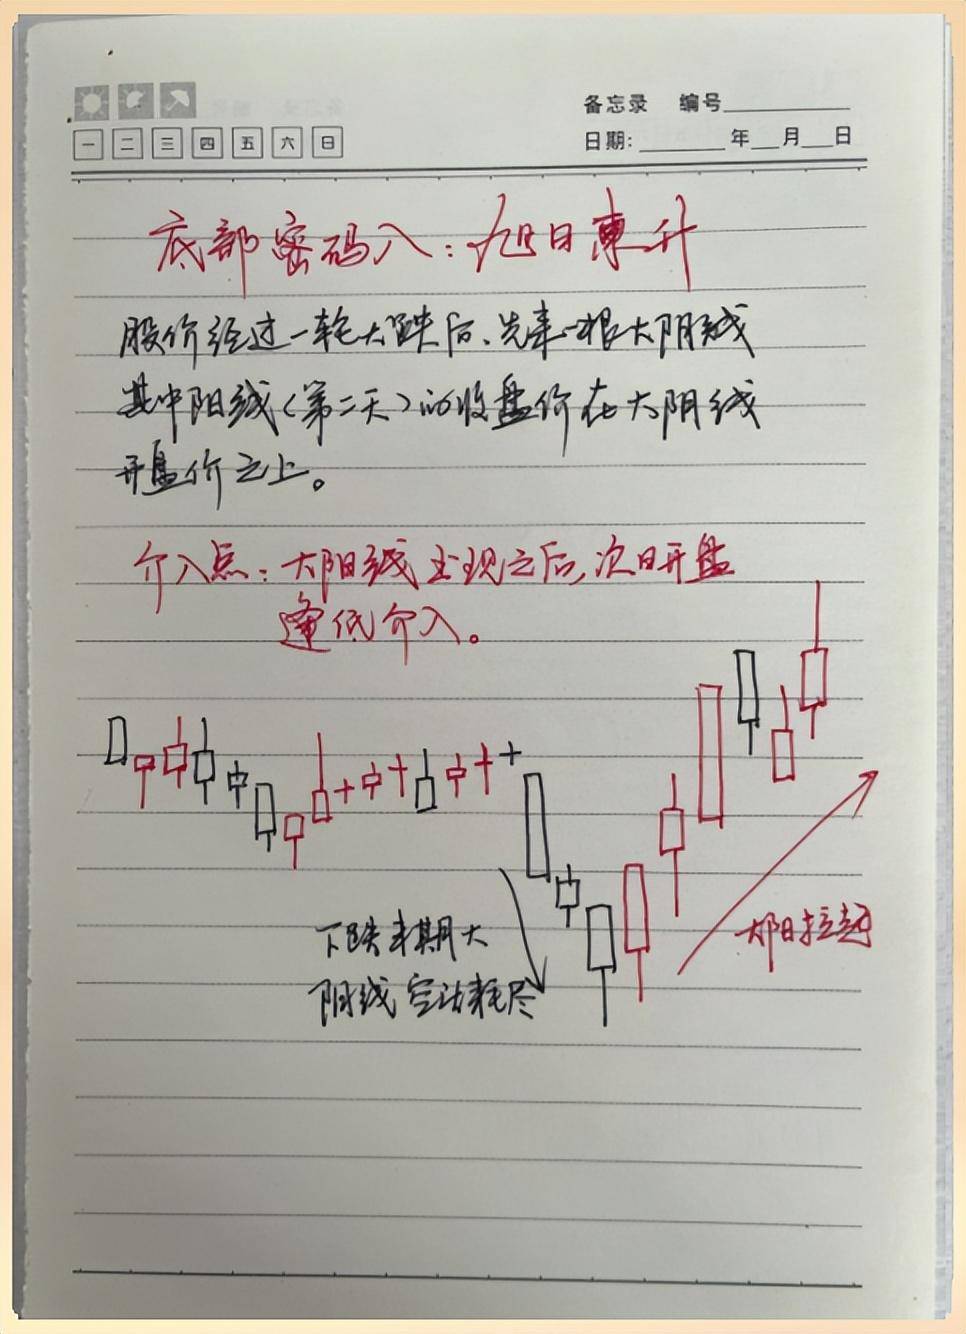 备忘录 编号
一 二 三 四 五 六 日
日期: 年 月 日
底部密码八：旭日東升
股价经过一轮大跌后、先来一根大阴线
其中阳线（第二天）的收盘价在大阴线
开盘价之上。
介入点：大阳线出现之后，次日开盘
逢低介入。
下跌末期大
阴线 空头耗尽
大阳拉起